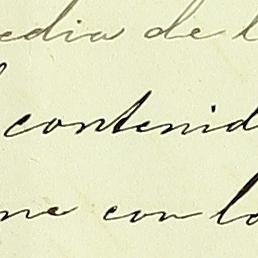 edia de l
contenid
ne con lo